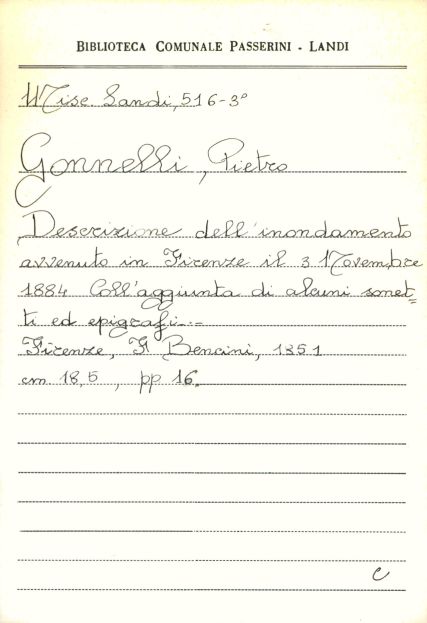 BIBLIOTECA COMUNALE PASSERINI - LANDI
Misc. Landi, 516-3°
Gonnelli, Pietro
Descrizione dell'inondamento
avvenuto in Firenze il 3 Novembre
1884 Coll'aggiunta di alcuni sonet=
ti ed epigrafi.-
Firenze, F Bencini, 1851
cm 18,5, pp 16.
C